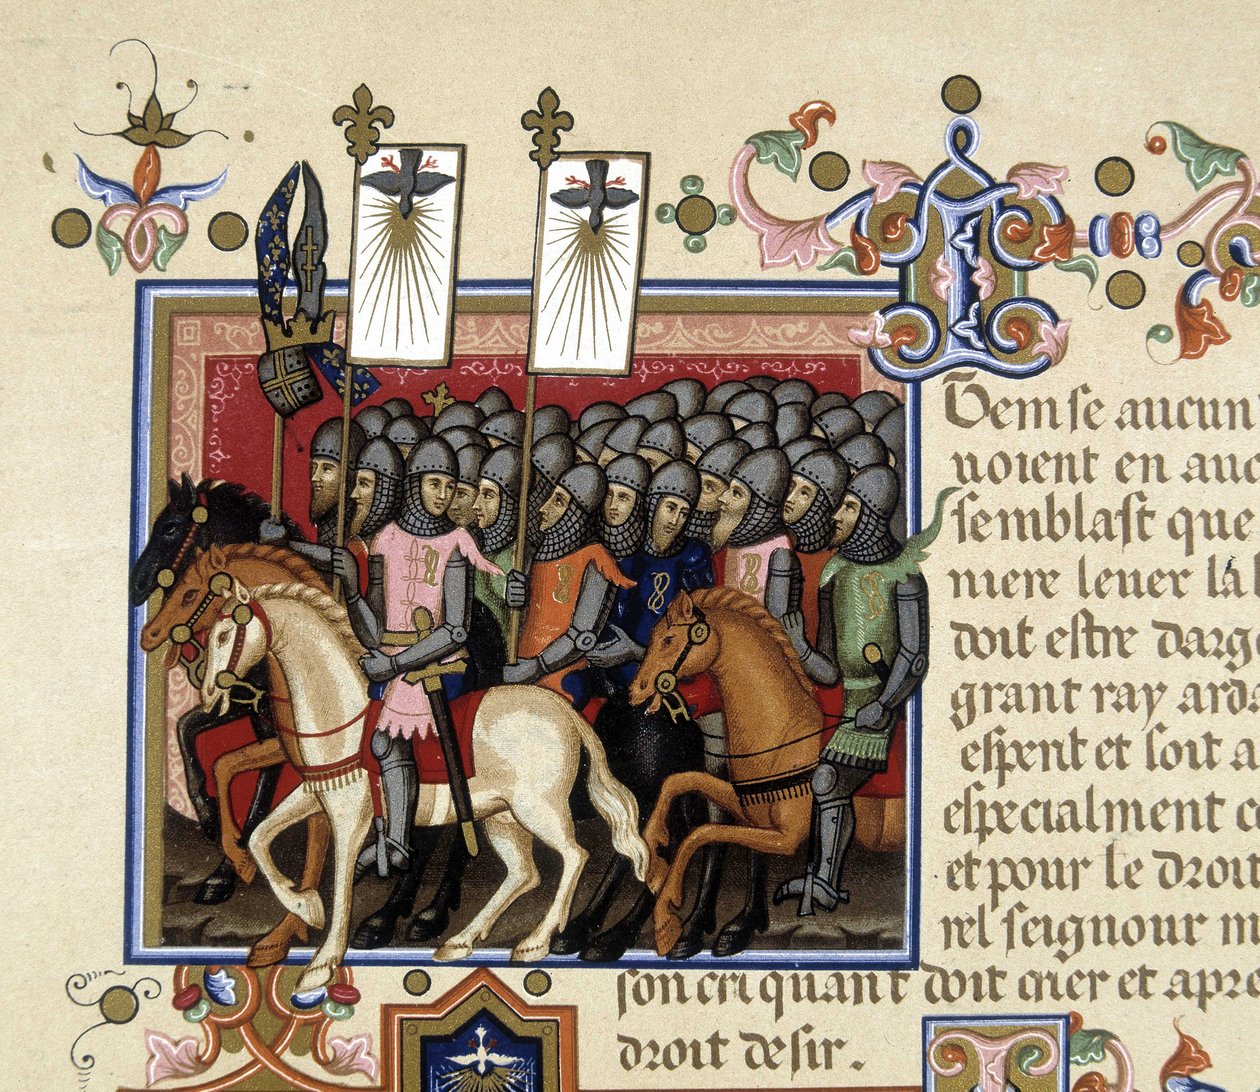 ITem se aucun
uoient en auc
semblast que
niere leuer la
doit estre darg
grant ray arda
espent et soit a
especialment c
et pour le droit
rel seignour m
son cri quant doit crier et apre
droit desir.